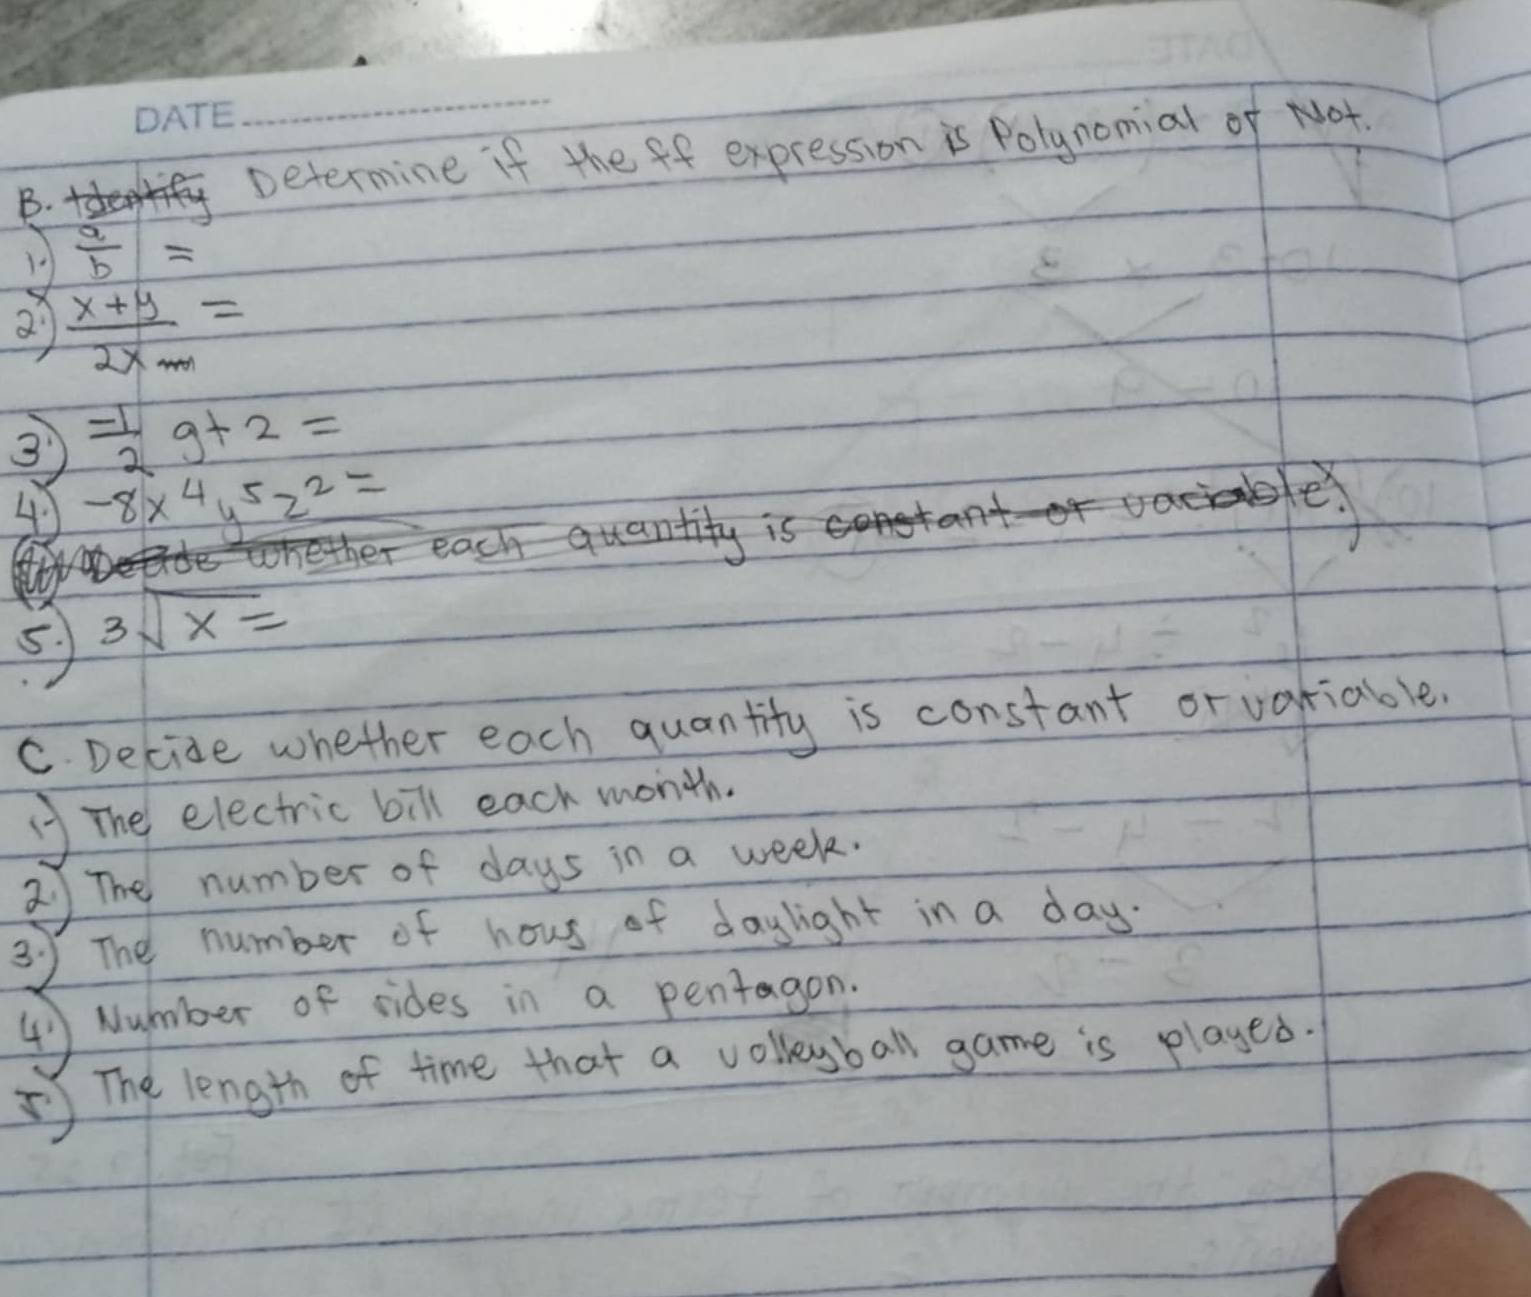 DATE
B. Identify Determine if the ff expression is Polynomial or Not.
1.) a/b =
2.) x+y/2x =
3.) -1/2 g+2 =
4.) -8x⁴y⁵z² =
Decide whether each quantity is constant or variable.
5.) 3√x =
C. Decide whether each quantity is constant or variable.
1.) The electric bill each month.
2.) The number of days in a week.
3.) The number of hous of daylight in a day.
4.) Number of sides in a pentagon.
5.) The length of time that a volleyball game is played.